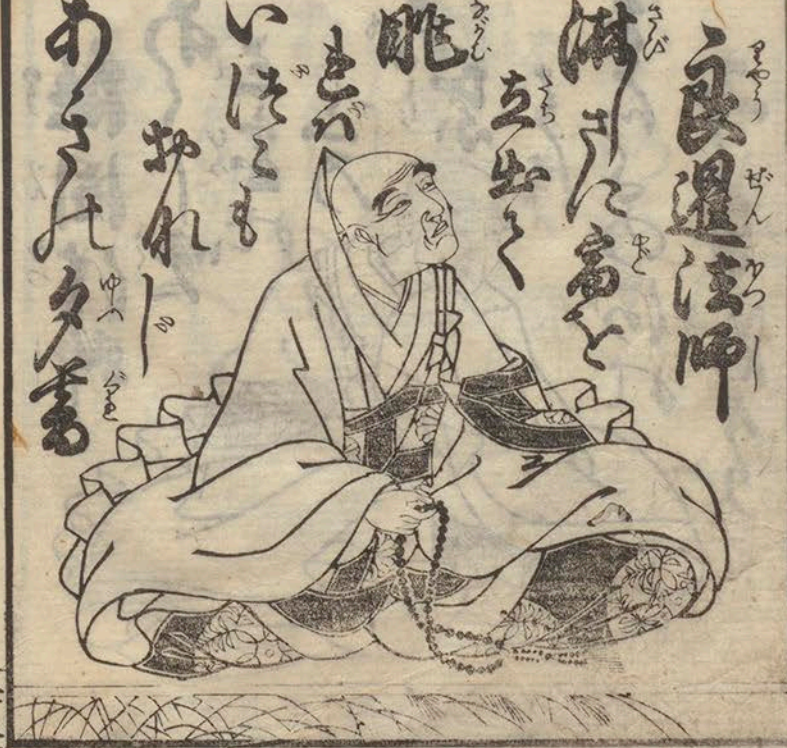 良暹法師
淋しさに宿を
立出て
眺
れば
いづこも
おなじ
あきの夕暮